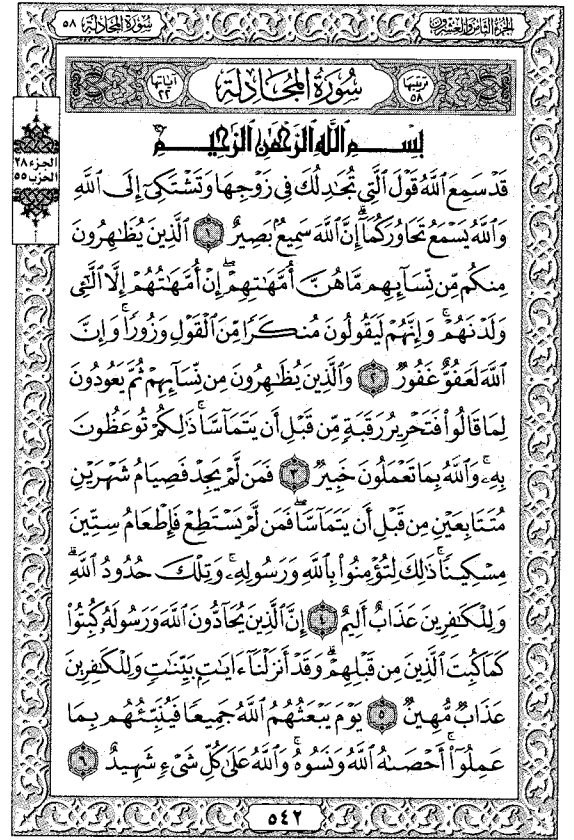 سُورَةُ المُجَادلة ٥٨
الجُزءُ الثَّامِن وَالعِشرُون
ترتيبها ٥٨
سُورَةُ المُجَادلة
آياتها ٢٢
الجزء ٢٨
الحزب ٥٥
بِسْمِ ٱللَّهِ ٱلرَّحْمَٰنِ ٱلرَّحِيمِ
قَدْ سَمِعَ ٱللَّهُ قَوْلَ ٱلَّتِي تُجَٰدِلُكَ فِي زَوْجِهَا وَتَشْتَكِيٓ إِلَى ٱللَّهِ
وَٱللَّهُ يَسْمَعُ تَحَاوُرَكُمَآ ۚ إِنَّ ٱللَّهَ سَمِيعٌۢ بَصِيرٌ ١ ٱلَّذِينَ يُظَٰهِرُونَ
مِنكُم مِّن نِّسَآئِهِم مَّا هُنَّ أُمَّهَٰتِهِمْ ۖ إِنْ أُمَّهَٰتُهُمْ إِلَّا ٱلَّٰٓـِٔي
وَلَدْنَهُمْ ۚ وَإِنَّهُمْ لَيَقُولُونَ مُنكَرًا مِّنَ ٱلْقَوْلِ وَزُورًا ۚ وَإِنَّ
ٱللَّهَ لَعَفُوٌّ غَفُورٌ ٢ وَٱلَّذِينَ يُظَٰهِرُونَ مِن نِّسَآئِهِمْ ثُمَّ يَعُودُونَ
لِمَا قَالُوا۟ فَتَحْرِيرُ رَقَبَةٍ مِّن قَبْلِ أَن يَتَمَآسَّا ۚ ذَٰلِكُمْ تُوعَظُونَ
بِهِۦ ۚ وَٱللَّهُ بِمَا تَعْمَلُونَ خَبِيرٌ ٣ فَمَن لَّمْ يَجِدْ فَصِيَامُ شَهْرَيْنِ
مُتَتَابِعَيْنِ مِن قَبْلِ أَن يَتَمَآسَّا ۖ فَمَن لَّمْ يَسْتَطِعْ فَإِطْعَامُ سِتِّينَ
مِسْكِينًا ۚ ذَٰلِكَ لِتُؤْمِنُوا۟ بِٱللَّهِ وَرَسُولِهِۦ ۚ وَتِلْكَ حُدُودُ ٱللَّهِ ۗ
وَلِلْكَٰفِرِينَ عَذَابٌ أَلِيمٌ ٤ إِنَّ ٱلَّذِينَ يُحَآدُّونَ ٱللَّهَ وَرَسُولَهُۥ كُبِتُوا۟
كَمَا كُبِتَ ٱلَّذِينَ مِن قَبْلِهِمْ ۚ وَقَدْ أَنزَلْنَآ ءَايَٰتٍۭ بَيِّنَٰتٍ ۚ وَلِلْكَٰفِرِينَ
عَذَابٌ مُّهِينٌ ٥ يَوْمَ يَبْعَثُهُمُ ٱللَّهُ جَمِيعًا فَيُنَبِّئُهُم بِمَا
عَمِلُوٓا۟ ۚ أَحْصَىٰهُ ٱللَّهُ وَنَسُوهُ ۚ وَٱللَّهُ عَلَىٰ كُلِّ شَيْءٍ شَهِيدٌ ٦
٥٤٢